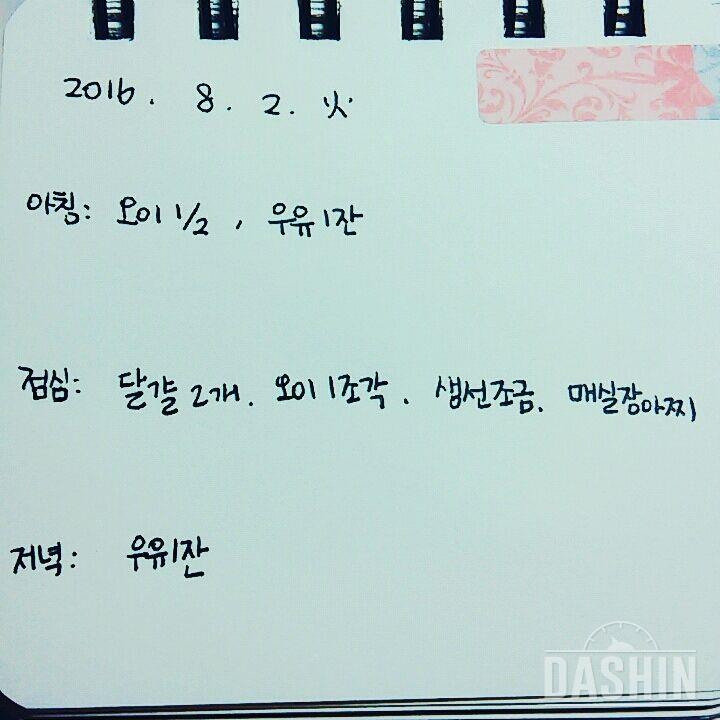 2016. 8. 2. 火
아침: 오이 1/2, 우유1잔
점심: 달걀 2개. 오이 1조각. 생선조금. 매실장아찌
저녁: 우유1잔
DASHIN